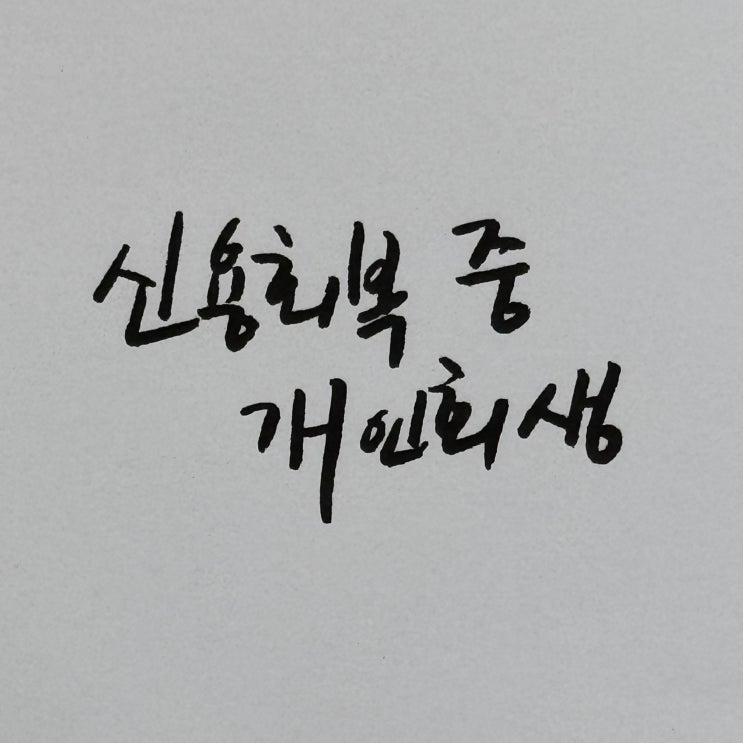 신용회복 중
개인회생